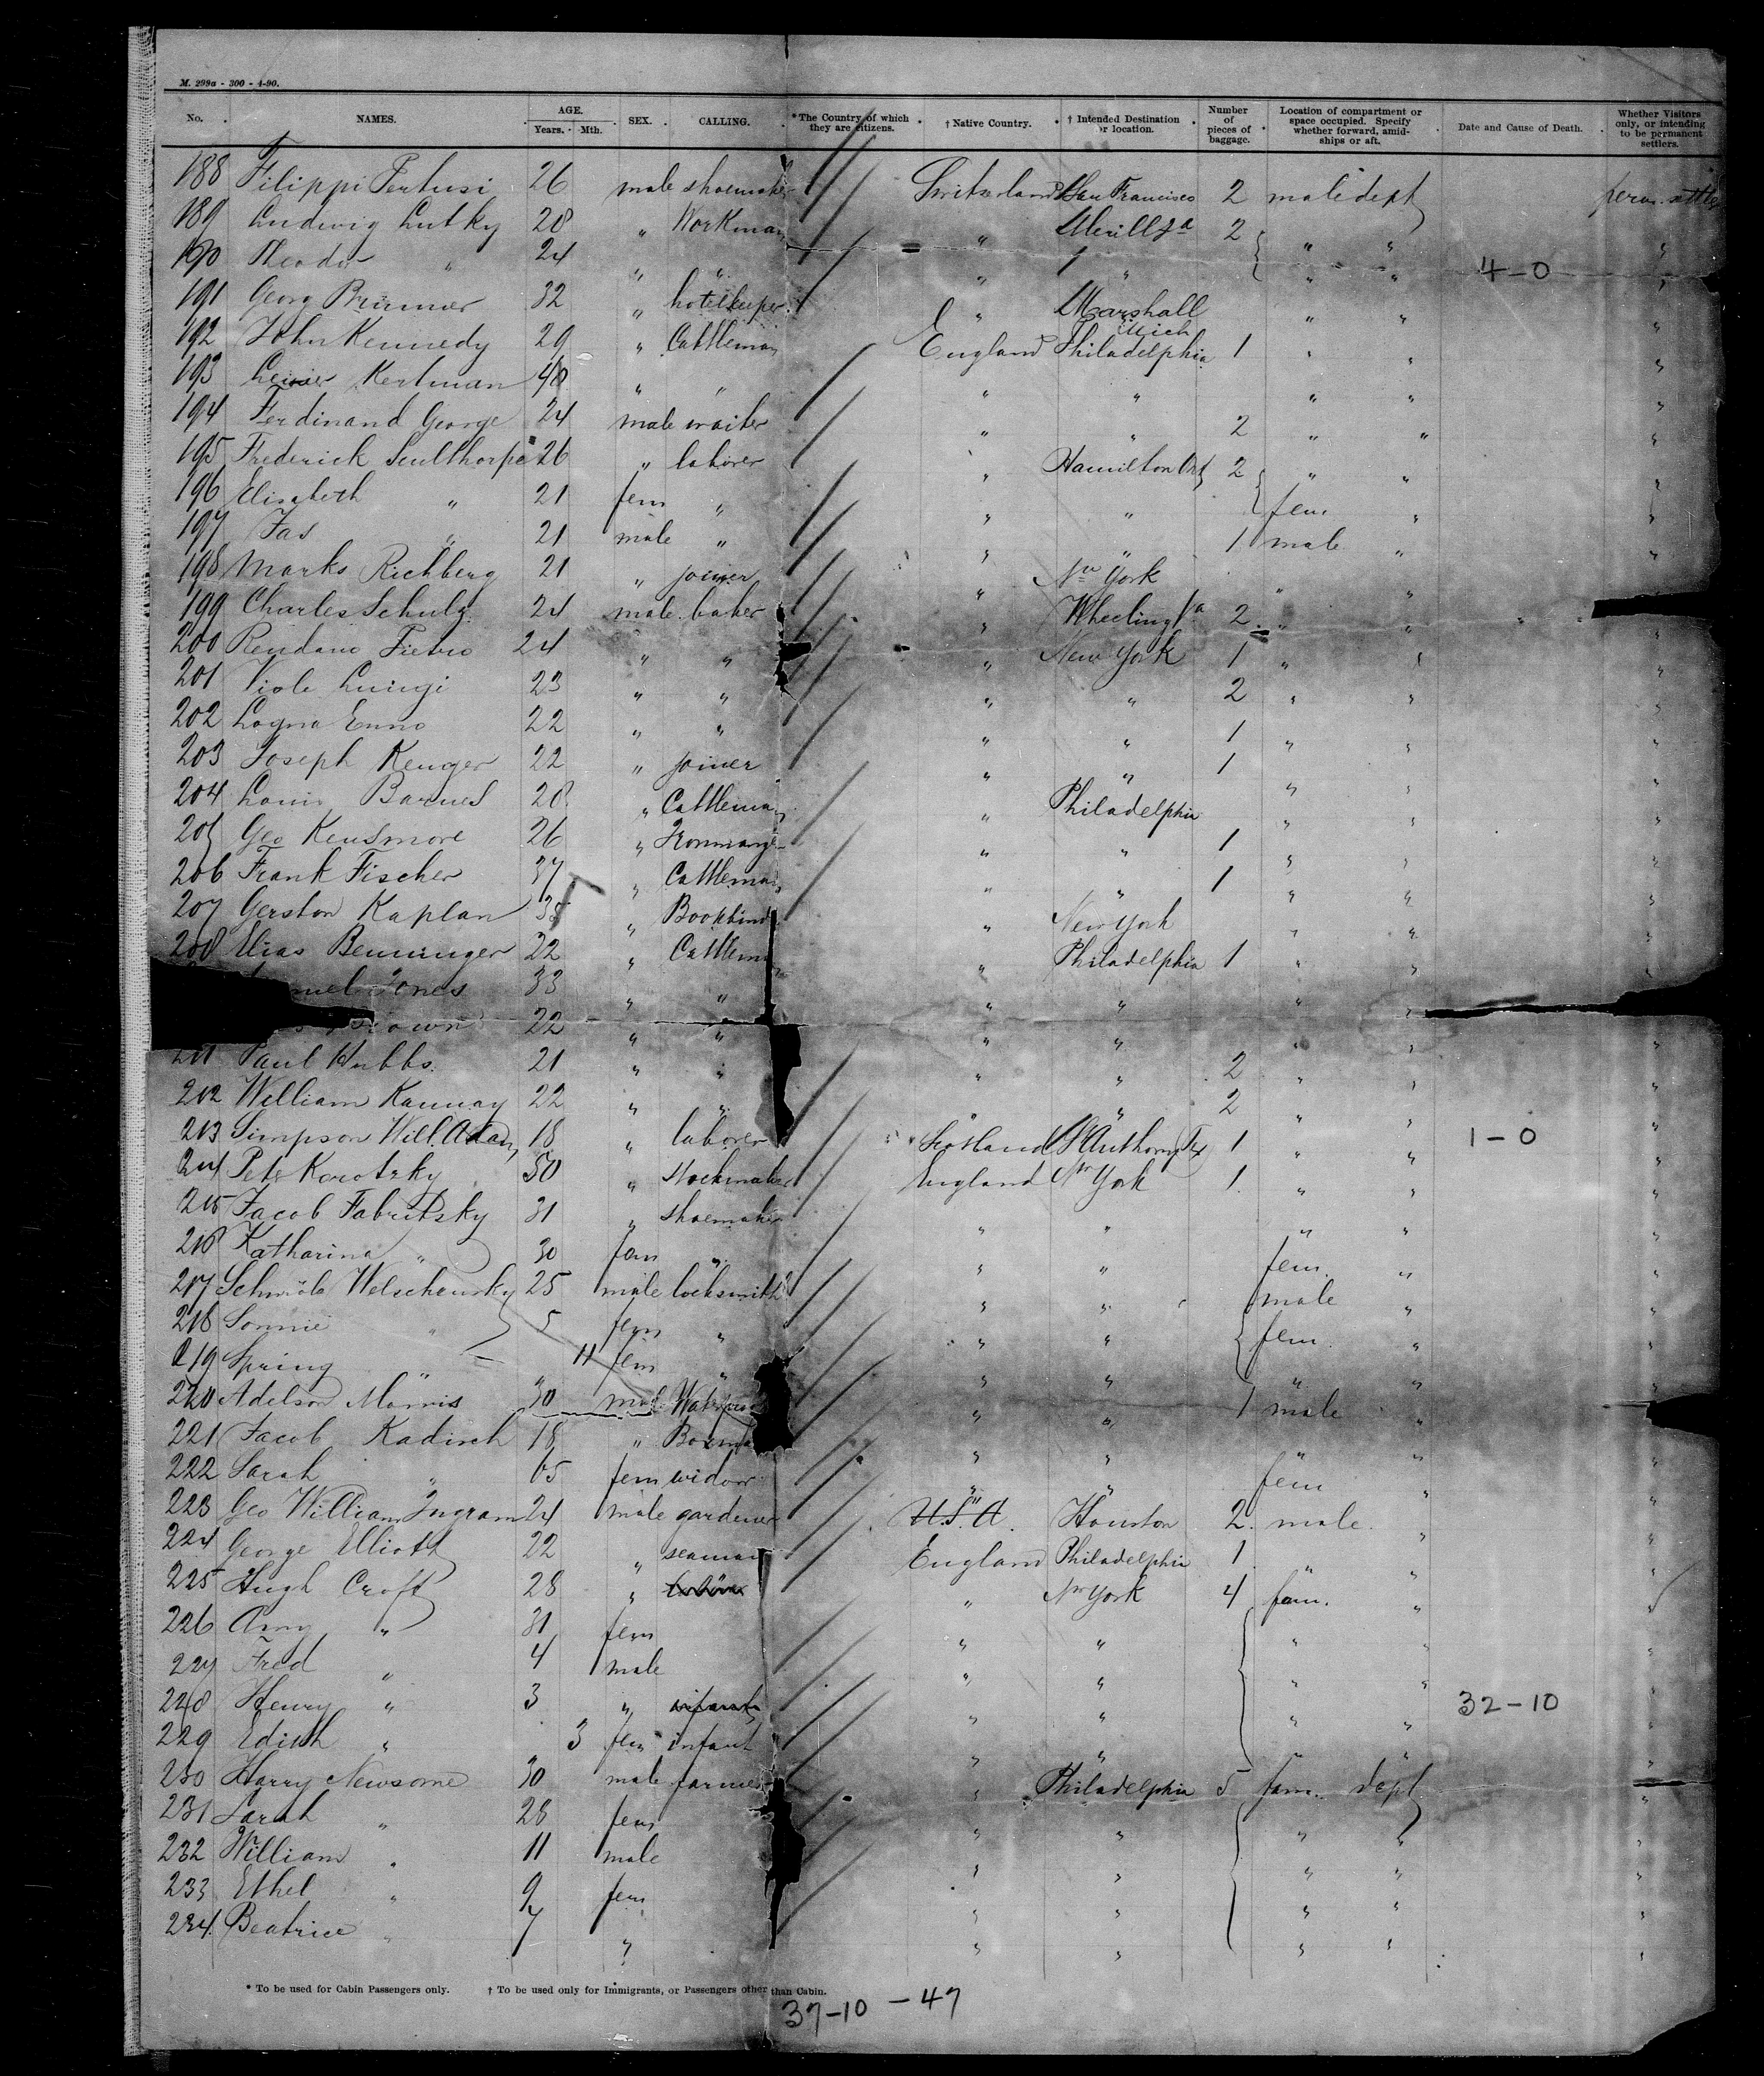 M. 298a - 300 - 4-90.
No. NAMES. AGE. Years. Mth. SEX. CALLING. *The Country of which they are citizens. † Native Country. † Intended Destination or location. Number of pieces of baggage. Location of compartment or space occupied. Specify whether forward, amid-ships or aft. Date and Cause of Death. Whether Visitors only, or intending to be permanent settlers.
188 Filippi Pertusi 26 male shoemaker Switzerland San Francisco 2 male dept
189 Ludwig Lutky 28 " Workman " 2 " " "
190 Theodor " 24 " " " " " " 4-0 "
191 Georg Brunner 32 " hotelkeeper " Marshall Mich " " "
192 John Kennedy 29 " Cattleman England Philadelphia 1 " " "
193 Kertman 48 " " " " " " "
194 Ferdinand George 24 male waiter " " 2 " " "
195 Frederick Sculthorpe 26 " laborer " Hamilton Ont 2 " " "
196 Elisabeth " 21 fem " " " fem " "
197 Jas " 21 male " " " 1 male " "
198 Marks Richberg 21 " joiner " New York " " "
199 Charles Schulz 24 male baker " Wheeling Va 2 " " "
200 Rendano Pietro 24 " " " New York 1 " " "
201 Viole Luigi 23 " " " " 2 " " "
202 Enno 22 " " " " 1 " " "
203 Joseph Kenger 22 " joiner " " 1 " " "
204 Louis Barnes 28 " Cattleman " Philadelphia " " "
205 Geo Kensmore 26 " " " 1 " " "
206 Frank Fischer 37 " Cattleman " " 1 " " "
207 Gerston Kaplan 35 " Bookbind " New York " " "
208 Elias Benninger 22 " Cattleman " Philadelphia 1 " " "
Jones 33 " " " " " " "
Brown 22 " " " " " " "
211 Paul Hubbs. 21 " " " " 2 " " "
212 William Kannay 22 " " " " 2 " " "
213 Simpson Will. Adam 18 " laborer Scotland St Anthony Tex 1 " " 1-0 "
214 Pete Korotzky 50 " England New York 1 " " "
215 Jacob Fabritsky 31 " shoemaker " " " " "
216 Katharina " 30 fem " " " fem. " "
217 Schmöle Welschensky 25 male locksmith " " male " "
218 Sonnie " 5 fem " " " fem. " "
219 Spring " 11 fem " " " " " "
220 Adelson Morris 30 male " " 1 male " "
221 Jacob Kadisch 18 " " " " " "
222 Sarah " 65 fem widow " " fem " "
223 Geo William Ingram 24 male gardener U.S.A. Houston 2. male. " "
224 George Elliott 22 " seaman England Philadelphia 1 " " "
225 Hugh Croft 28 " " New York 4 fam. "
226 Amy " 31 fem " " " " "
227 Fred " 4 male " " " " "
228 Henry " 3 " infant " " " " 32-10 "
229 Edith " 3 fem infant " " " " "
230 Harry Newsome 30 male farmer " Philadelphia 5 fam. dept. "
231 Sarah " 28 fem " " " " "
232 William " 11 male " " " " "
233 Ethel " 9 fem " " " " "
234 Beatrice " 7 " " " " " "
* To be used for Cabin Passengers only. † To be used only for Immigrants, or Passengers other than Cabin.
37-10 - 47